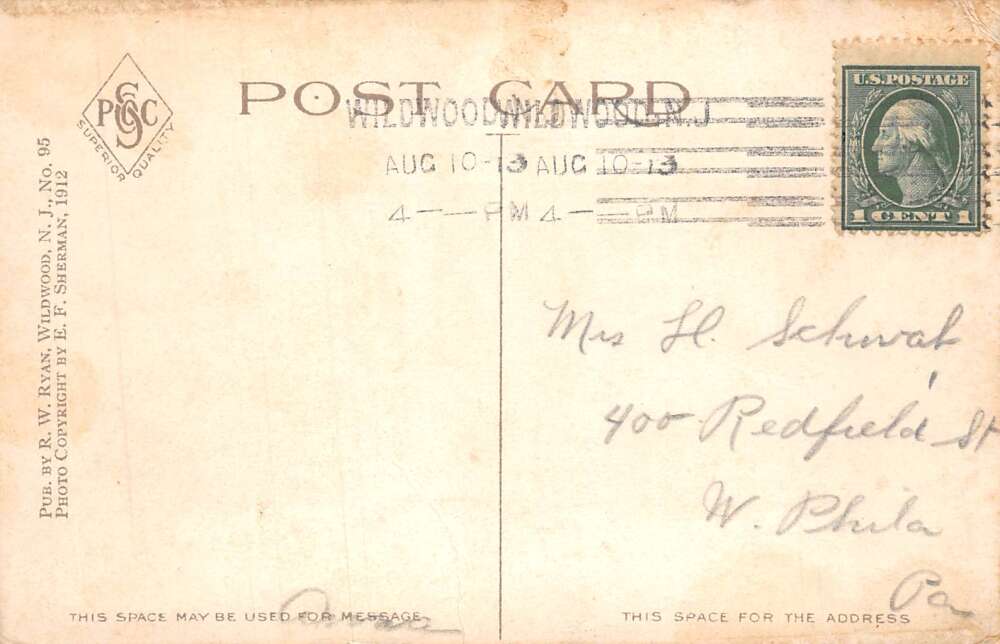 POST CARD
PSC
SUPERIOR QUALITY
WILDWOOD WILDWOOD N.J
AUG 10-13 AUG 10-13
4-—PM 4-—PM
U.S.POSTAGE
1 CENT 1
PUB. BY R. W. RYAN, WILDWOOD, N. J., No. 95
PHOTO COPYRIGHT BY E. F. SHERMAN, 1912
Mrs H. Schwab
400 Redfield St
W. Phila
Pa
THIS SPACE MAY BE USED FOR MESSAGE
THIS SPACE FOR THE ADDRESS